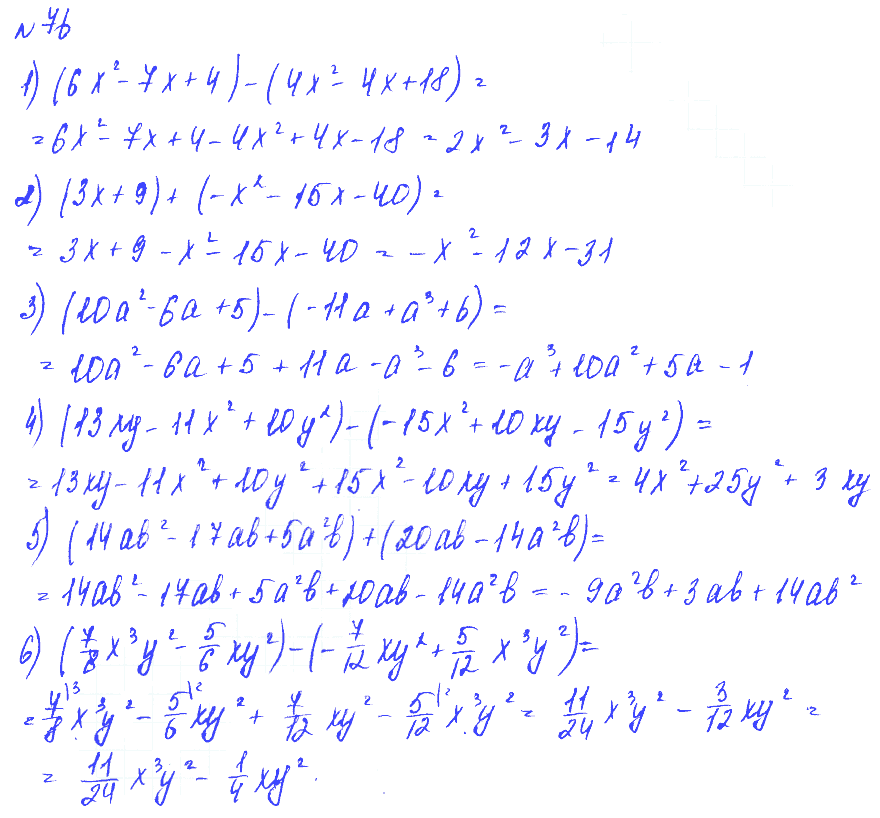 № 76
1) (6x² - 7x + 4) - (4x² - 4x + 18) =
= 6x² - 7x + 4 - 4x² + 4x - 18 = 2x² - 3x - 14
2) (3x + 9) + (-x² - 15x - 40) =
= 3x + 9 - x² - 15x - 40 = -x² - 12x - 31
3) (10a² - 6a + 5) - (-11a + a³ + 6) =
= 10a² - 6a + 5 + 11a - a³ - 6 = -a³ + 10a² + 5a - 1
4) (13xy - 11x² + 10y²) - (-15x² + 10xy - 15y²) =
= 13xy - 11x² + 10y² + 15x² - 10xy + 15y² = 4x² + 25y² + 3xy
5) (14ab² - 17ab + 5a²b) + (20ab - 14a²b) =
= 14ab² - 17ab + 5a²b + 20ab - 14a²b = -9a²b + 3ab + 14ab²
6) (7/8 x³y² - 5/6 xy²) - (-7/12 xy² + 5/12 x³y²) =
= 7|3/8 x³y² - 5|2/6 xy² + 7/12 xy² - 5|2/12 x³y² = 11/24 x³y² - 3/12 xy² =
= 11/24 x³y² - 1/4 xy².